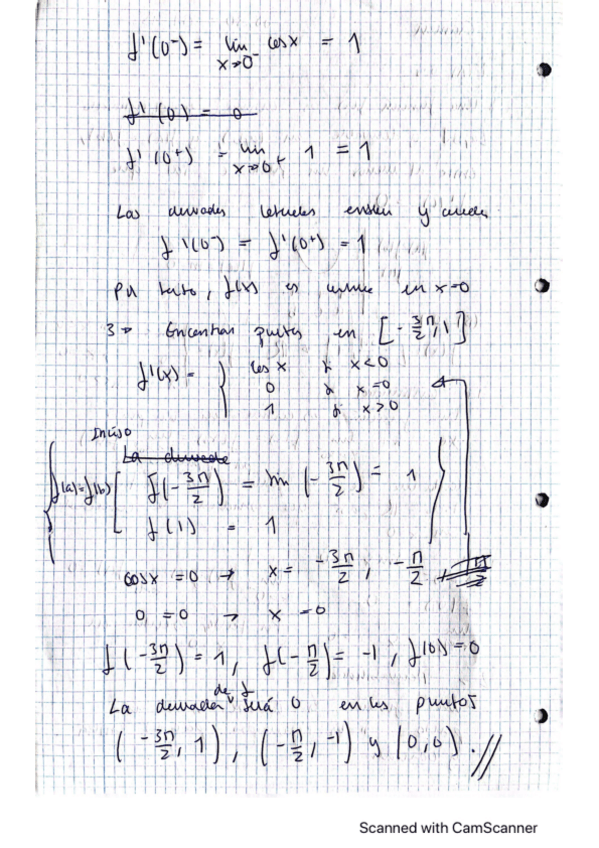 f'(0⁻) = lim x→0⁻ cos x = 1
f'(0) = 0
f'(0⁺) = lim x→0⁺ 1 = 1
Las y
f'(0⁻) = f'(0⁺) = 1
Por tanto, f(x) es en x=0
3 → Encontrar puntos en [-3π/2, 1]
f'(x) = { cos x si x<0
0 si x=0
1 si x>0
Inciso
La derivada
f(a)=f(b) [ f(-3π/2) = sin (-3π/2) = 1
f(1) = 1
cos x = 0 → x = -3π/2, -π/2, π/2
0 = 0 → x = 0
f(-3π/2) = 1, f(-π/2) = -1, f(0) = 0
La derivada de f será 0 en los puntos
(-3π/2, 1), (-π/2, -1) y (0,0). //
Scanned with CamScanner